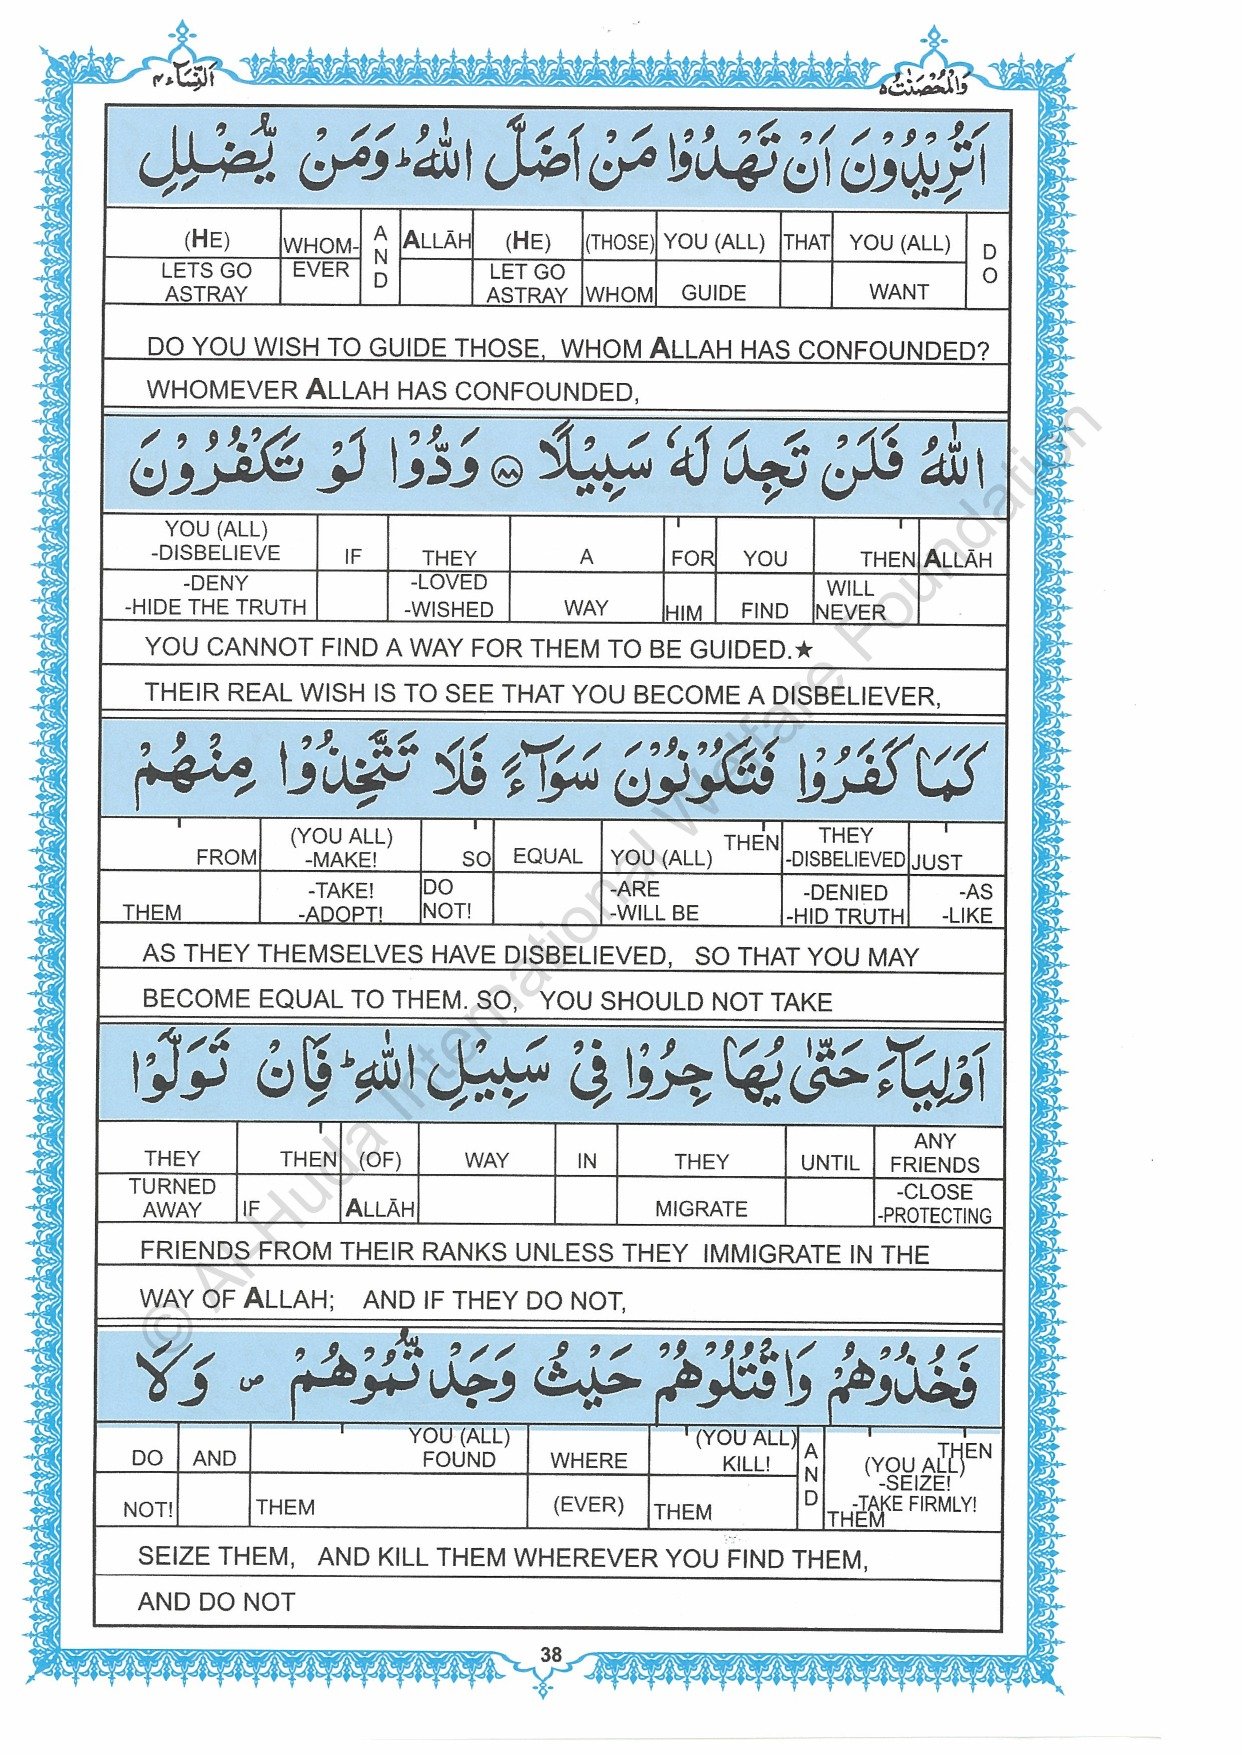 النساء ٤ والمحصنت ٥
اَتُرِيْدُوْنَ اَنْ تَهْدُوْا مَنْ اَضَلَّ اللّٰهُ ؕ وَمَنْ يُّضْلِلِ
(HE) WHOM- A N D ALLĀH (HE) (THOSE) YOU (ALL) THAT YOU (ALL) D O
LETS GO ASTRAY EVER LET GO ASTRAY WHOM GUIDE WANT
DO YOU WISH TO GUIDE THOSE, WHOM ALLAH HAS CONFOUNDED?
WHOMEVER ALLAH HAS CONFOUNDED,
اللّٰهُ فَلَنْ تَجِدَ لَهٗ سَبِيْلًا ۝٨٨ وَدُّوْا لَوْ تَكْفُرُوْنَ
YOU (ALL) -DISBELIEVE IF THEY A FOR YOU THEN ALLĀH
-DENY -HIDE THE TRUTH -LOVED -WISHED WAY HIM FIND WILL NEVER
YOU CANNOT FIND A WAY FOR THEM TO BE GUIDED.★
THEIR REAL WISH IS TO SEE THAT YOU BECOME A DISBELIEVER,
كَمَا كَفَرُوْا فَتَكُوْنُوْنَ سَوَآءً فَلَا تَتَّخِذُوْا مِنْهُمْ
FROM (YOU ALL) -MAKE! SO EQUAL YOU (ALL) THEN THEY -DISBELIEVED JUST
THEM -TAKE! -ADOPT! DO NOT! -ARE -WILL BE -DENIED -HID TRUTH -AS -LIKE
AS THEY THEMSELVES HAVE DISBELIEVED, SO THAT YOU MAY
BECOME EQUAL TO THEM. SO, YOU SHOULD NOT TAKE
اَوْلِيَآءَ حَتّٰى يُهَاجِرُوْا فِيْ سَبِيْلِ اللّٰهِ ؕ فَاِنْ تَوَلَّوْا
THEY THEN (OF) WAY IN THEY UNTIL ANY FRIENDS
TURNED AWAY IF ALLĀH MIGRATE -CLOSE -PROTECTING
FRIENDS FROM THEIR RANKS UNLESS THEY IMMIGRATE IN THE
WAY OF ALLAH; AND IF THEY DO NOT,
فَخُذُوْهُمْ وَاقْتُلُوْهُمْ حَيْثُ وَجَدْتُّمُوْهُمْ ۪ وَلَا
DO AND YOU (ALL) FOUND WHERE (YOU ALL) KILL! A N D THEN (YOU ALL) -SEIZE!
NOT! THEM (EVER) THEM -TAKE FIRMLY! THEM
SEIZE THEM, AND KILL THEM WHEREVER YOU FIND THEM,
AND DO NOT
38
© Al-Huda International Welfare Foundation